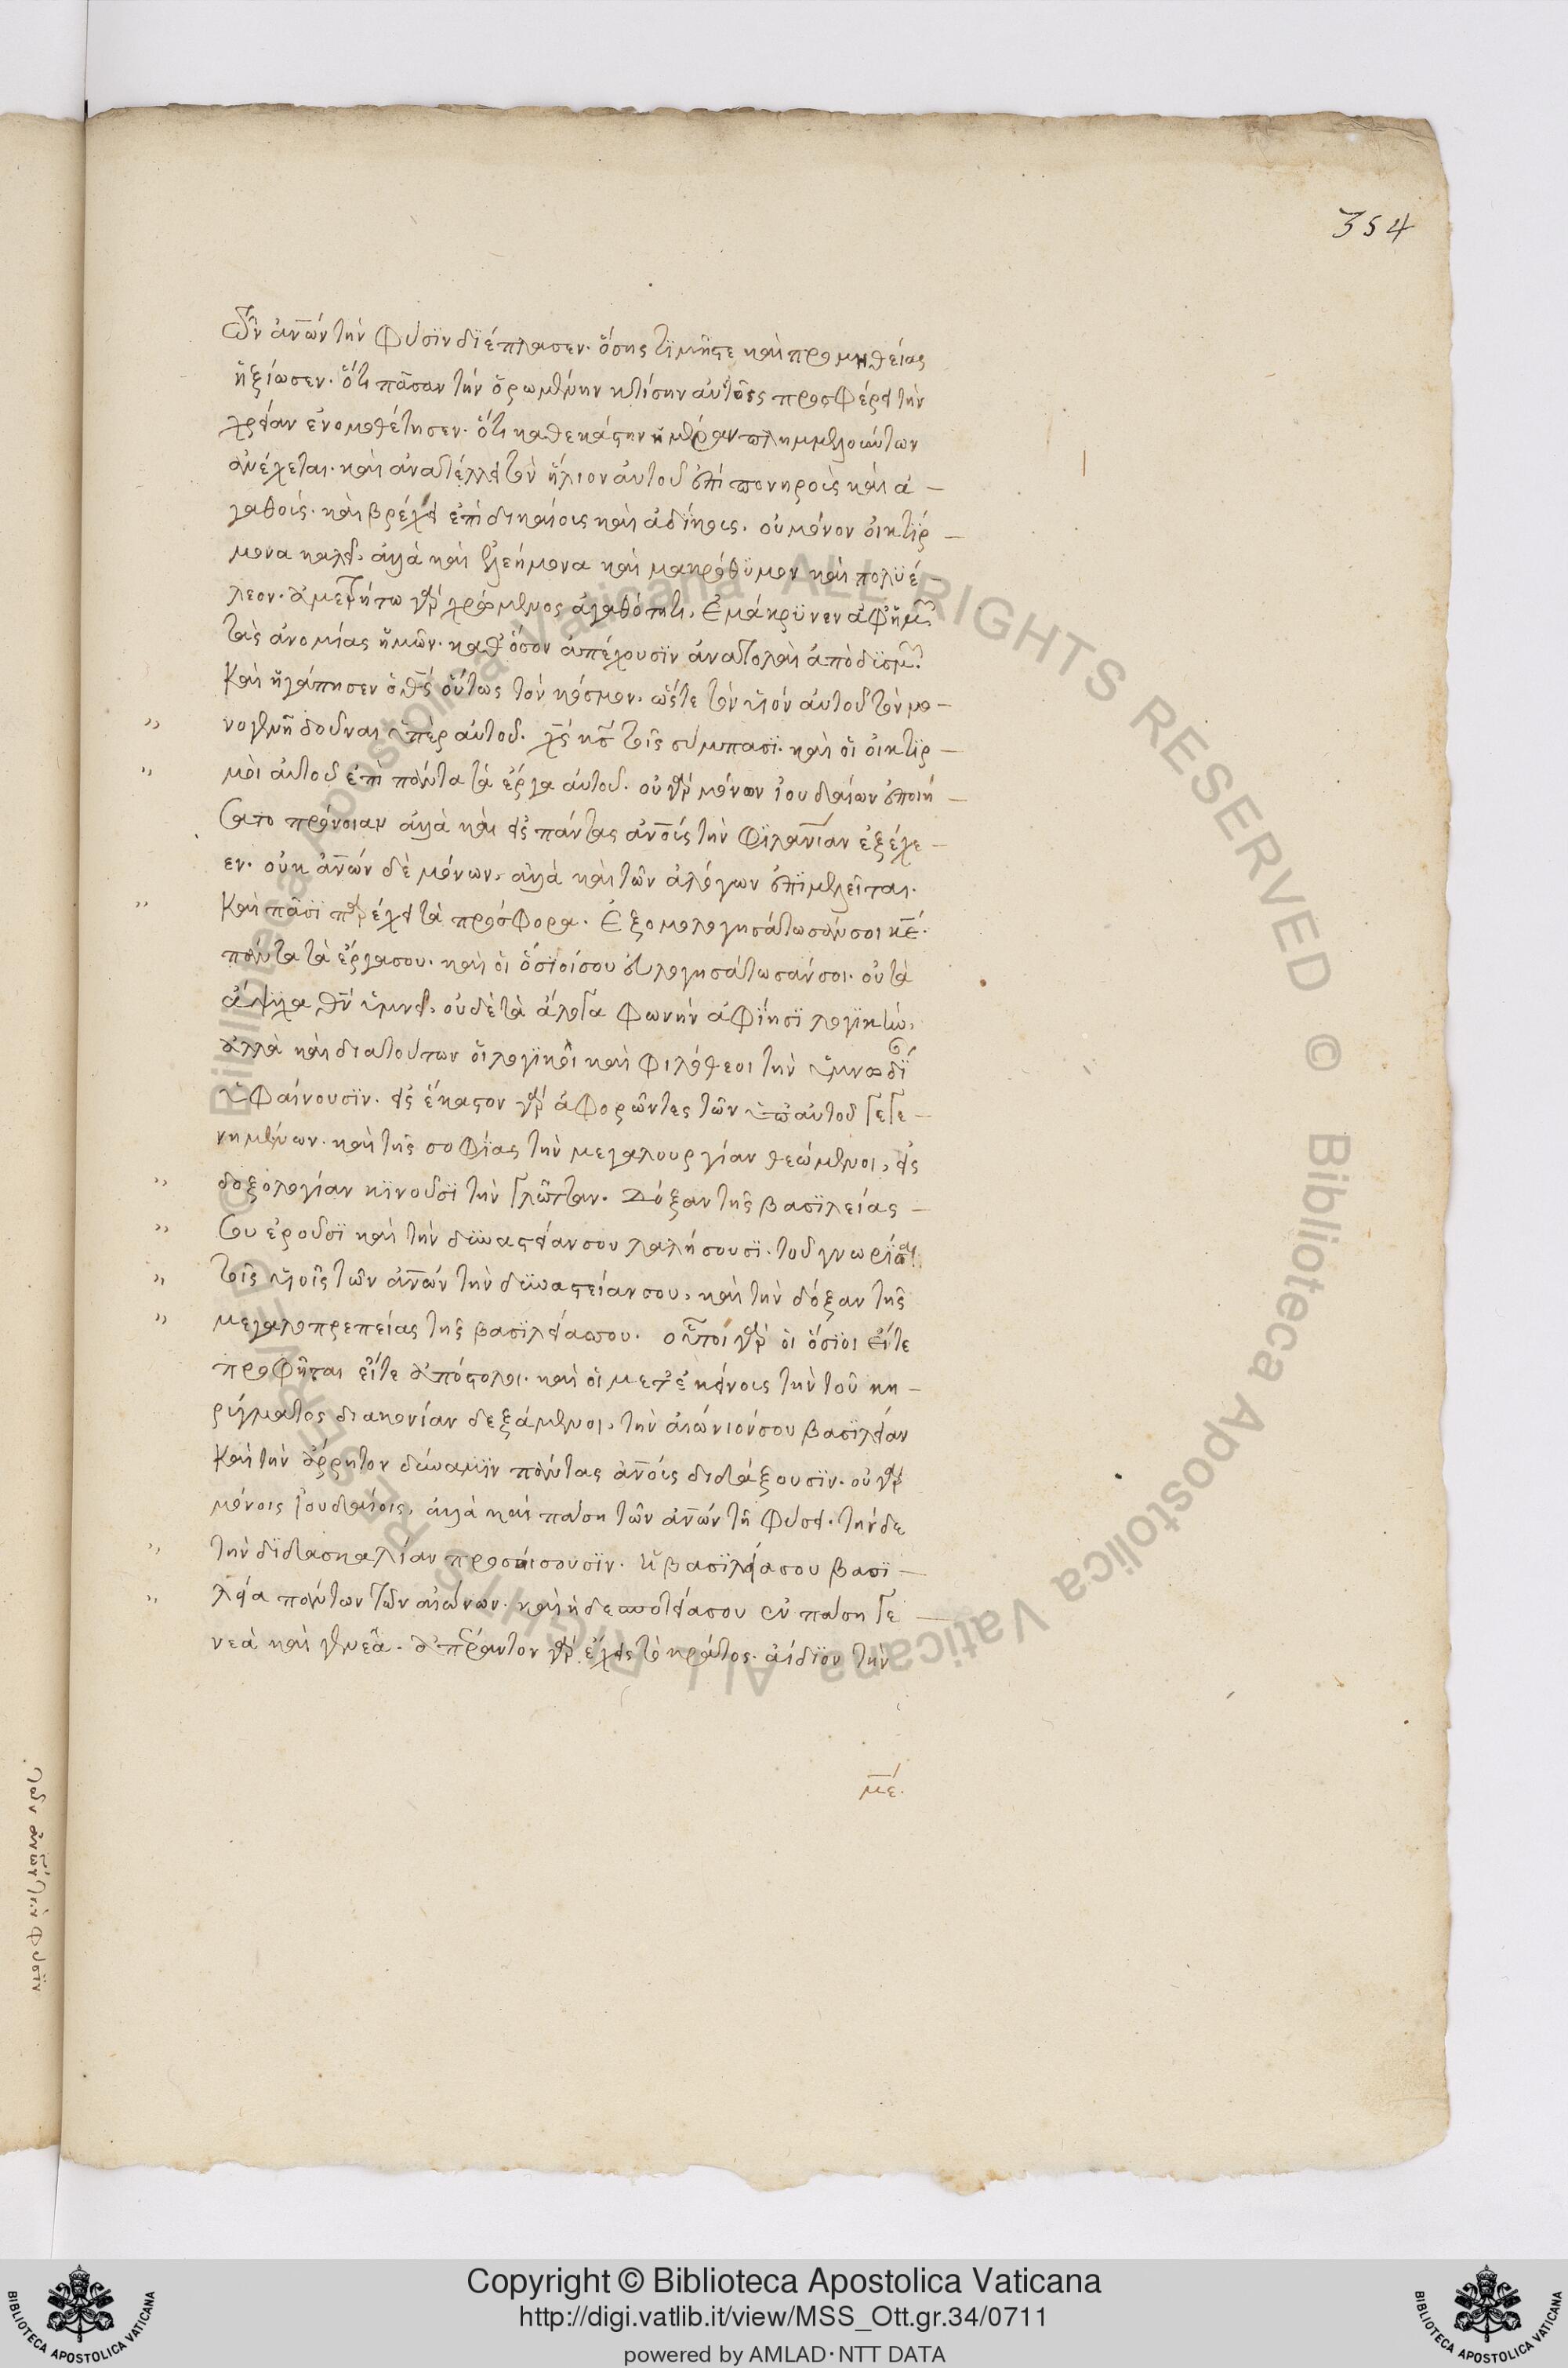 354
τῶν ἀνων τὴν φύσϊν διέπλασεν. ὅσης τϊμῆς τε καὶ προμηθείας
ἠξίωσεν. ὅτι πᾶσαν τὴν ὁρωμένην κτίσην αὐτοῖς προσφέρει τὴν
χρείαν ἐνομοθέτησεν. ὅτι καθεκάστην ἡμέραν πλημμελούντων
ἀνέχεται. καὶ ἀνατέλλει τὸν ἥλιον αὐτοῦ ἐπὶ πονηροὺς καὶ ἀ-
γαθούς. καὶ βρέχει ἐπὶ δικαίοις καὶ ἀδίκοις. οὐ μόνον οἰκτίρ-
μονα καλεῖ, ἀλλὰ καὶ ἐλεήμονα καὶ μακρόθϋμον καὶ πολϋέ-
λεον. ἀμετρήτω γὰρ χρώμενος ἀγαθότητι, ἐμάκρϋνεν ἀφ ἡμῶν
τὰς ἀνομίας ἡμῶν. καθ ὅσον ἀπέχουσϊν ἀνατολαὶ ἀπὸ δϋσμῶν.
καὶ ἠγάπησεν ὁ θς οὕτως τὸν κόσμον. ὥστε τὸν υἱὸν αὐτοῦ τὸν μο-
νογενῆ δοῦναι ὑπὲρ αὐτοῦ. χς κς τοῖς σύμπασϊ. καὶ οἱ οἰκτϊρ-
μοὶ αὐτοῦ ἐπὶ πάντα τὰ ἔργα αὐτοῦ. οὐ γὰρ μόνων ἰουδαίων ἐποιή-
σατο πρόνοιαν ἀλλὰ καὶ εἰς πάντας ἀνους τὴν φϊλανίαν ἐξέχε-
εν. οὐκ ἀνων δὲ μόνων, ἀλλὰ καὶ τῶν ἀλόγων ἐπϊμελεῖται.
καὶ πᾶσϊ παρέχει τὰ πρόσφορα. ἐξομολογησάτωσάν σοι κε.
πάντα τὰ ἔργα σου. καὶ οἱ ὅσϊοί σου εὐλογησάτωσάν σοι. οὐ τὰ
ἄψϋχα θν ὑμνεῖ, οὐδὲ τὰ ἄλογα φωνὴν ἀφϊησϊ λογϊκὴν,
ἀλλὰ καὶ διὰ τούτων οἱ λογϊκοὶ καὶ φιλόθεοι τὴν ὑμνωδϊ
ὑφαίνουσϊν. εἰς ἕκαστον γὰρ ἀφορῶντες τῶν ὑπ αὐτοῦ γεγε-
νημένων. καὶ τῆς σοφίας τὴν μεγαλουργίαν θεώμενοι, εἰς
δοξολογίαν κϊνοῦσϊ τὴν γλῶτταν. Δόξαν τῆς βασϊλείας
σου ἐροῦσϊ καὶ τὴν δϋναστείαν σου λαλήσουσϊ. τοῦ γνωρίσαι
τοῖς υἱοῖς τῶν ἀνων τὴν δϋναστείαν σου, καὶ τὴν δόξαν τῆς
μεγαλοπρεπείας τῆς βασϊλείας σου. οὗτοι γὰρ οἱ ὅσϊοι εἴτε
προφῆται εἴτε ἀπόστολοι. καὶ οἱ μετ ἐκείνοις τὴν τοῦ κη-
ρύγματος διακονίαν δεξάμενοι, τὴν αἰώνιόν σου βασϊλείαν
καὶ τὴν ἄρρητον δύναμϊν πάντας ἀνους διδάξουσϊν. οὐ γὰρ
μόνοις ἰουδαίοις, ἀλλὰ καὶ πάση τῶν ἀνων τῆ φύσει. τήνδε
τὴν διδασκαλίαν προσοίσουσϊν. ἡ βασϊλεία σου βασϊ-
λεία πάντων τῶν αἰώνων. καὶ ἡ δεσποτεία σου ἐν πάση γε-
νεὰ καὶ γενεᾶ. ἀπέραντον γὰρ ἔχεις τὸ κράτος. ἀίδϊον τὴν
με.
τῶν ἀνων τὴν φύσϊν
Copyright © Biblioteca Apostolica Vaticana
http://digi.vatlib.it/view/MSS_Ott.gr.34/0711
powered by AMLAD·NTT DATA
BIBLIOTECA APOSTOLICA VATICANA
BIBLIOTECA APOSTOLICA VATICANA
© Biblioteca Apostolica Vaticana ALL RIGHTS RESERVED © Biblioteca Apostolica Vaticana ALL RIGHTS RESERVED